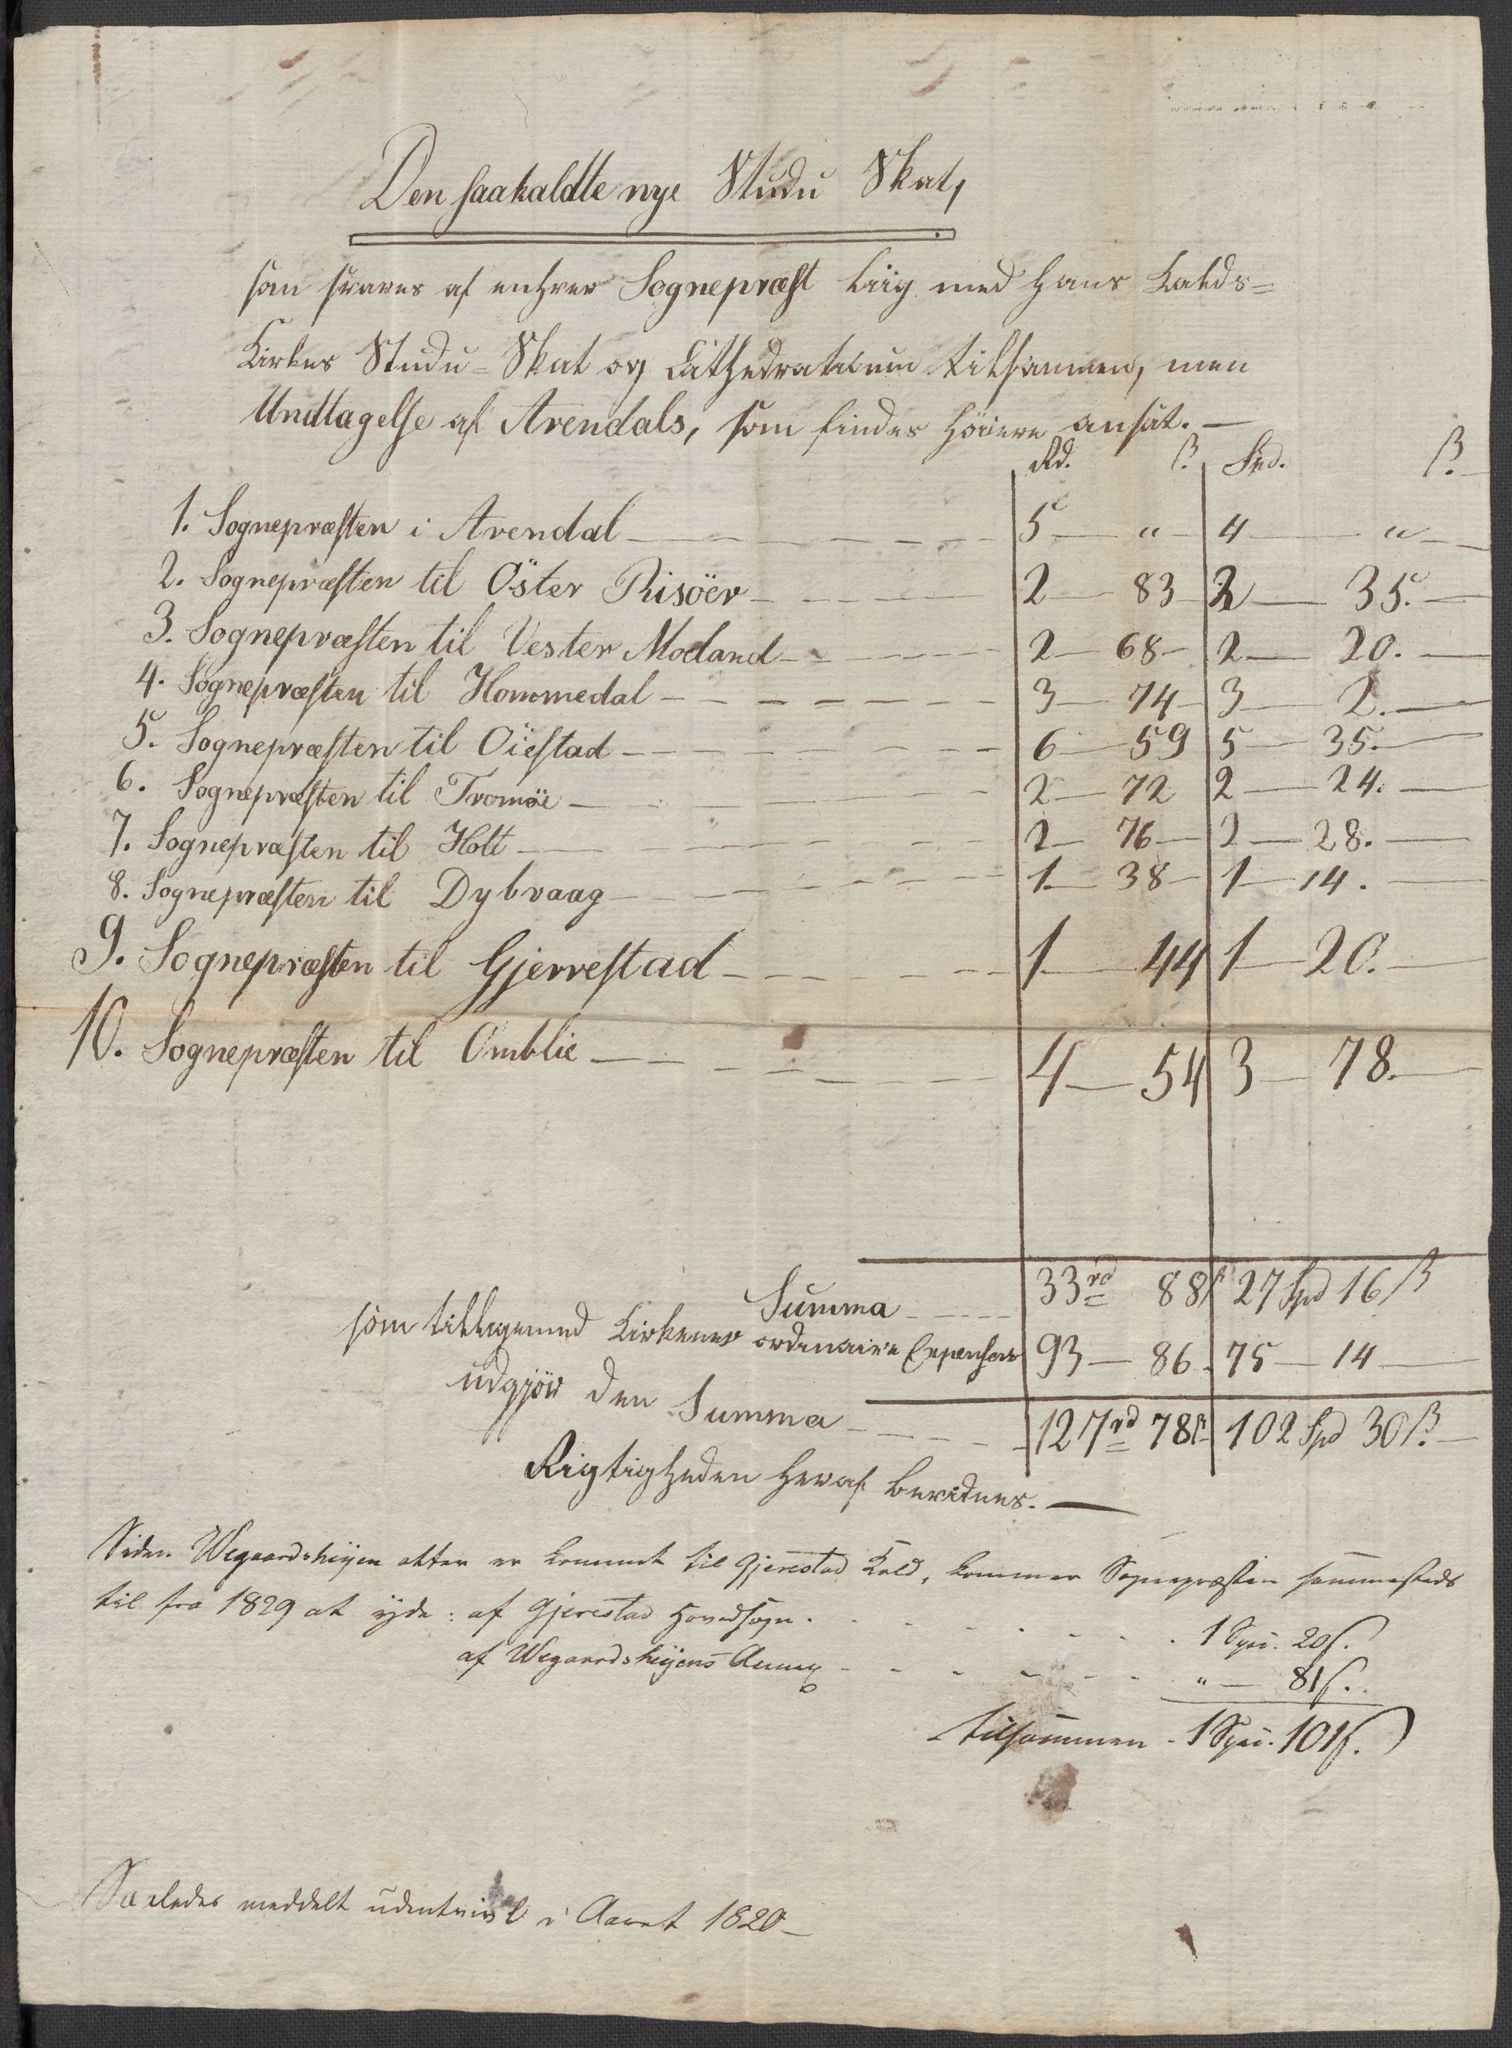 Den saakaldte nye Studii Skat,
som svares af enhver Sognepræst liig med hans Kalds-
Kirkes Studii-Skat og Cathedraticum tilsammen, men
Undtagelse af Arendals, som findes høiere ansat. —
Rd. ß. Spd. ß.
1. Sognepræsten i Arendal 5 " 4 "
2. Sognepræsten til Öster Risöer 2 83 2 35.
3. Sognepræsten til Vester Moeland 2 68 2 20.
4. Sognepræsten til Hommedal 3 74 3 2.
5. Sognepræsten til Öiestad 6 59 5 35.
6. Sognepræsten til Tromöe 2 72 2 24.
7. Sognepræsten til Holt 2 76 2 28.
8. Sognepræsten til Dybvaag 1 38 1 14.
9. Sognepræsten til Gjerrestad 1 44 1 20.
10. Sognepræsten til Omblie 4 54 3 78.
Summa 33 rd 88 ß 27 Spd 16 ß
som tilligemed Kirkernes ordinaire Expenser 93 86 75 14
udgjör den Summa 127 rd 78 ß 102 Spd 30 ß.
Rigtigheden heraf bevidnes. —
Siden Wegaardshejen atter er kommet til Gjerestad Kald, kommer Sognepræsten sammesteds
til fra 1829 at yde: af Gjerestad Hovedsogn 1 Spec. 20 ß.
af Wegaardshejens Annex " — 81 ß.
tilsammen 1 Spec. 101 ß.
Saaledes meddelt udentvivl i Aaret 1820